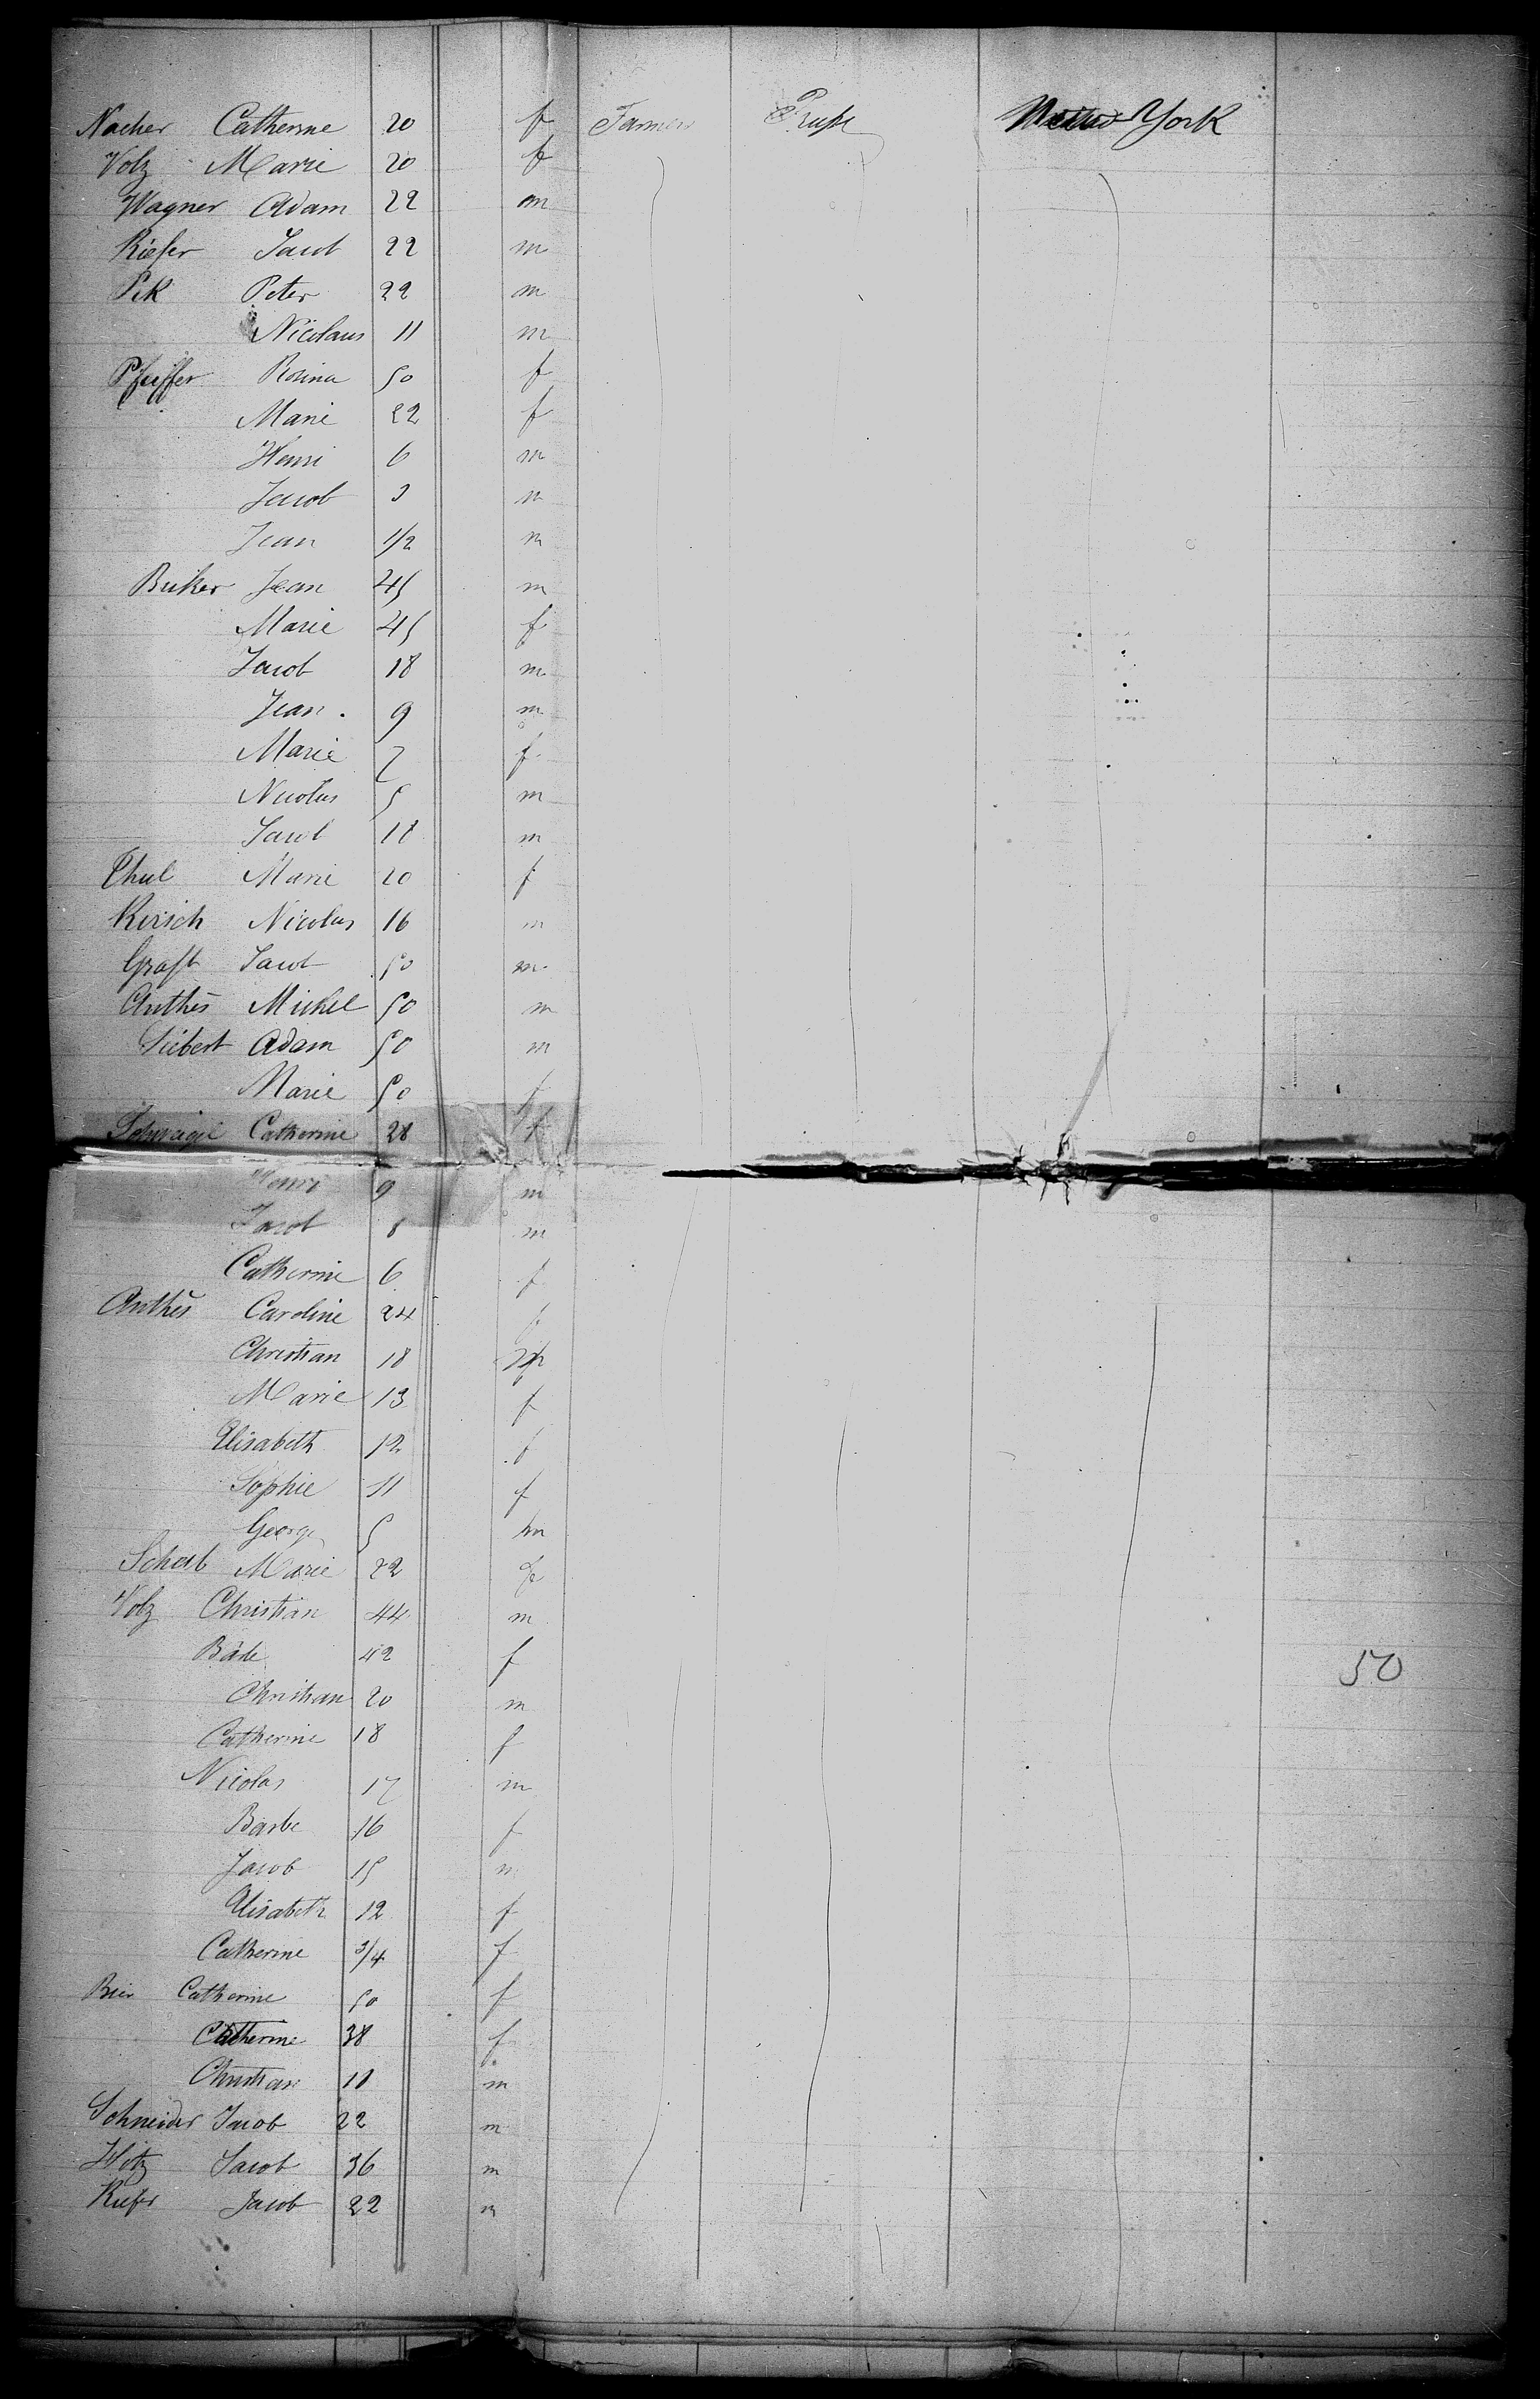 Nacher Catherine 20 f Farmers Prusse New York
Volz Marie 20 f
Wagner Adam 22 m
Kiefer Jacob 22 m
Pik Peter 22 m
Nicolaus 11 m
Pfeiffer Rosina 50 f
Marie 22 f
Henri 6 m
Jacob 3 m
Jean 1/2 m
Buker Jean 45 m
Marie 45 f
Jacob 18 m
Jean 9 m
Marie 7 f
Nicolas 5 m
Jacob 18 m
Marie 20 f
Kirsch Nicolas 16 m
Graft Jacob 50 m
Anthes Michel 50 m
Siebert Adam 50 m
Marie 50 f
Catherine 28 f
Henri 9 m
Jacob 8 m
Catherine 6 f
Anthes Caroline 24 f
Christian 18 m
Marie 13 f
Elisabeth 12 f
Sophie 11 f
George 5 m
Schub Marie 22 f
Volz Christian 44 m
42 f 50
Christian 20 m
Catherine 18 f
Nicolas 17 m
Barbe 16 f
Jacob 15 m
Elisabeth 12 f
Catherine 3/4 f
Bier Catherine 50 f
Catherine 38 f
Christian 11 m
Schneider Jacob 22 m
Hotz Jacob 36 m
Kiefer Jacob 22 m